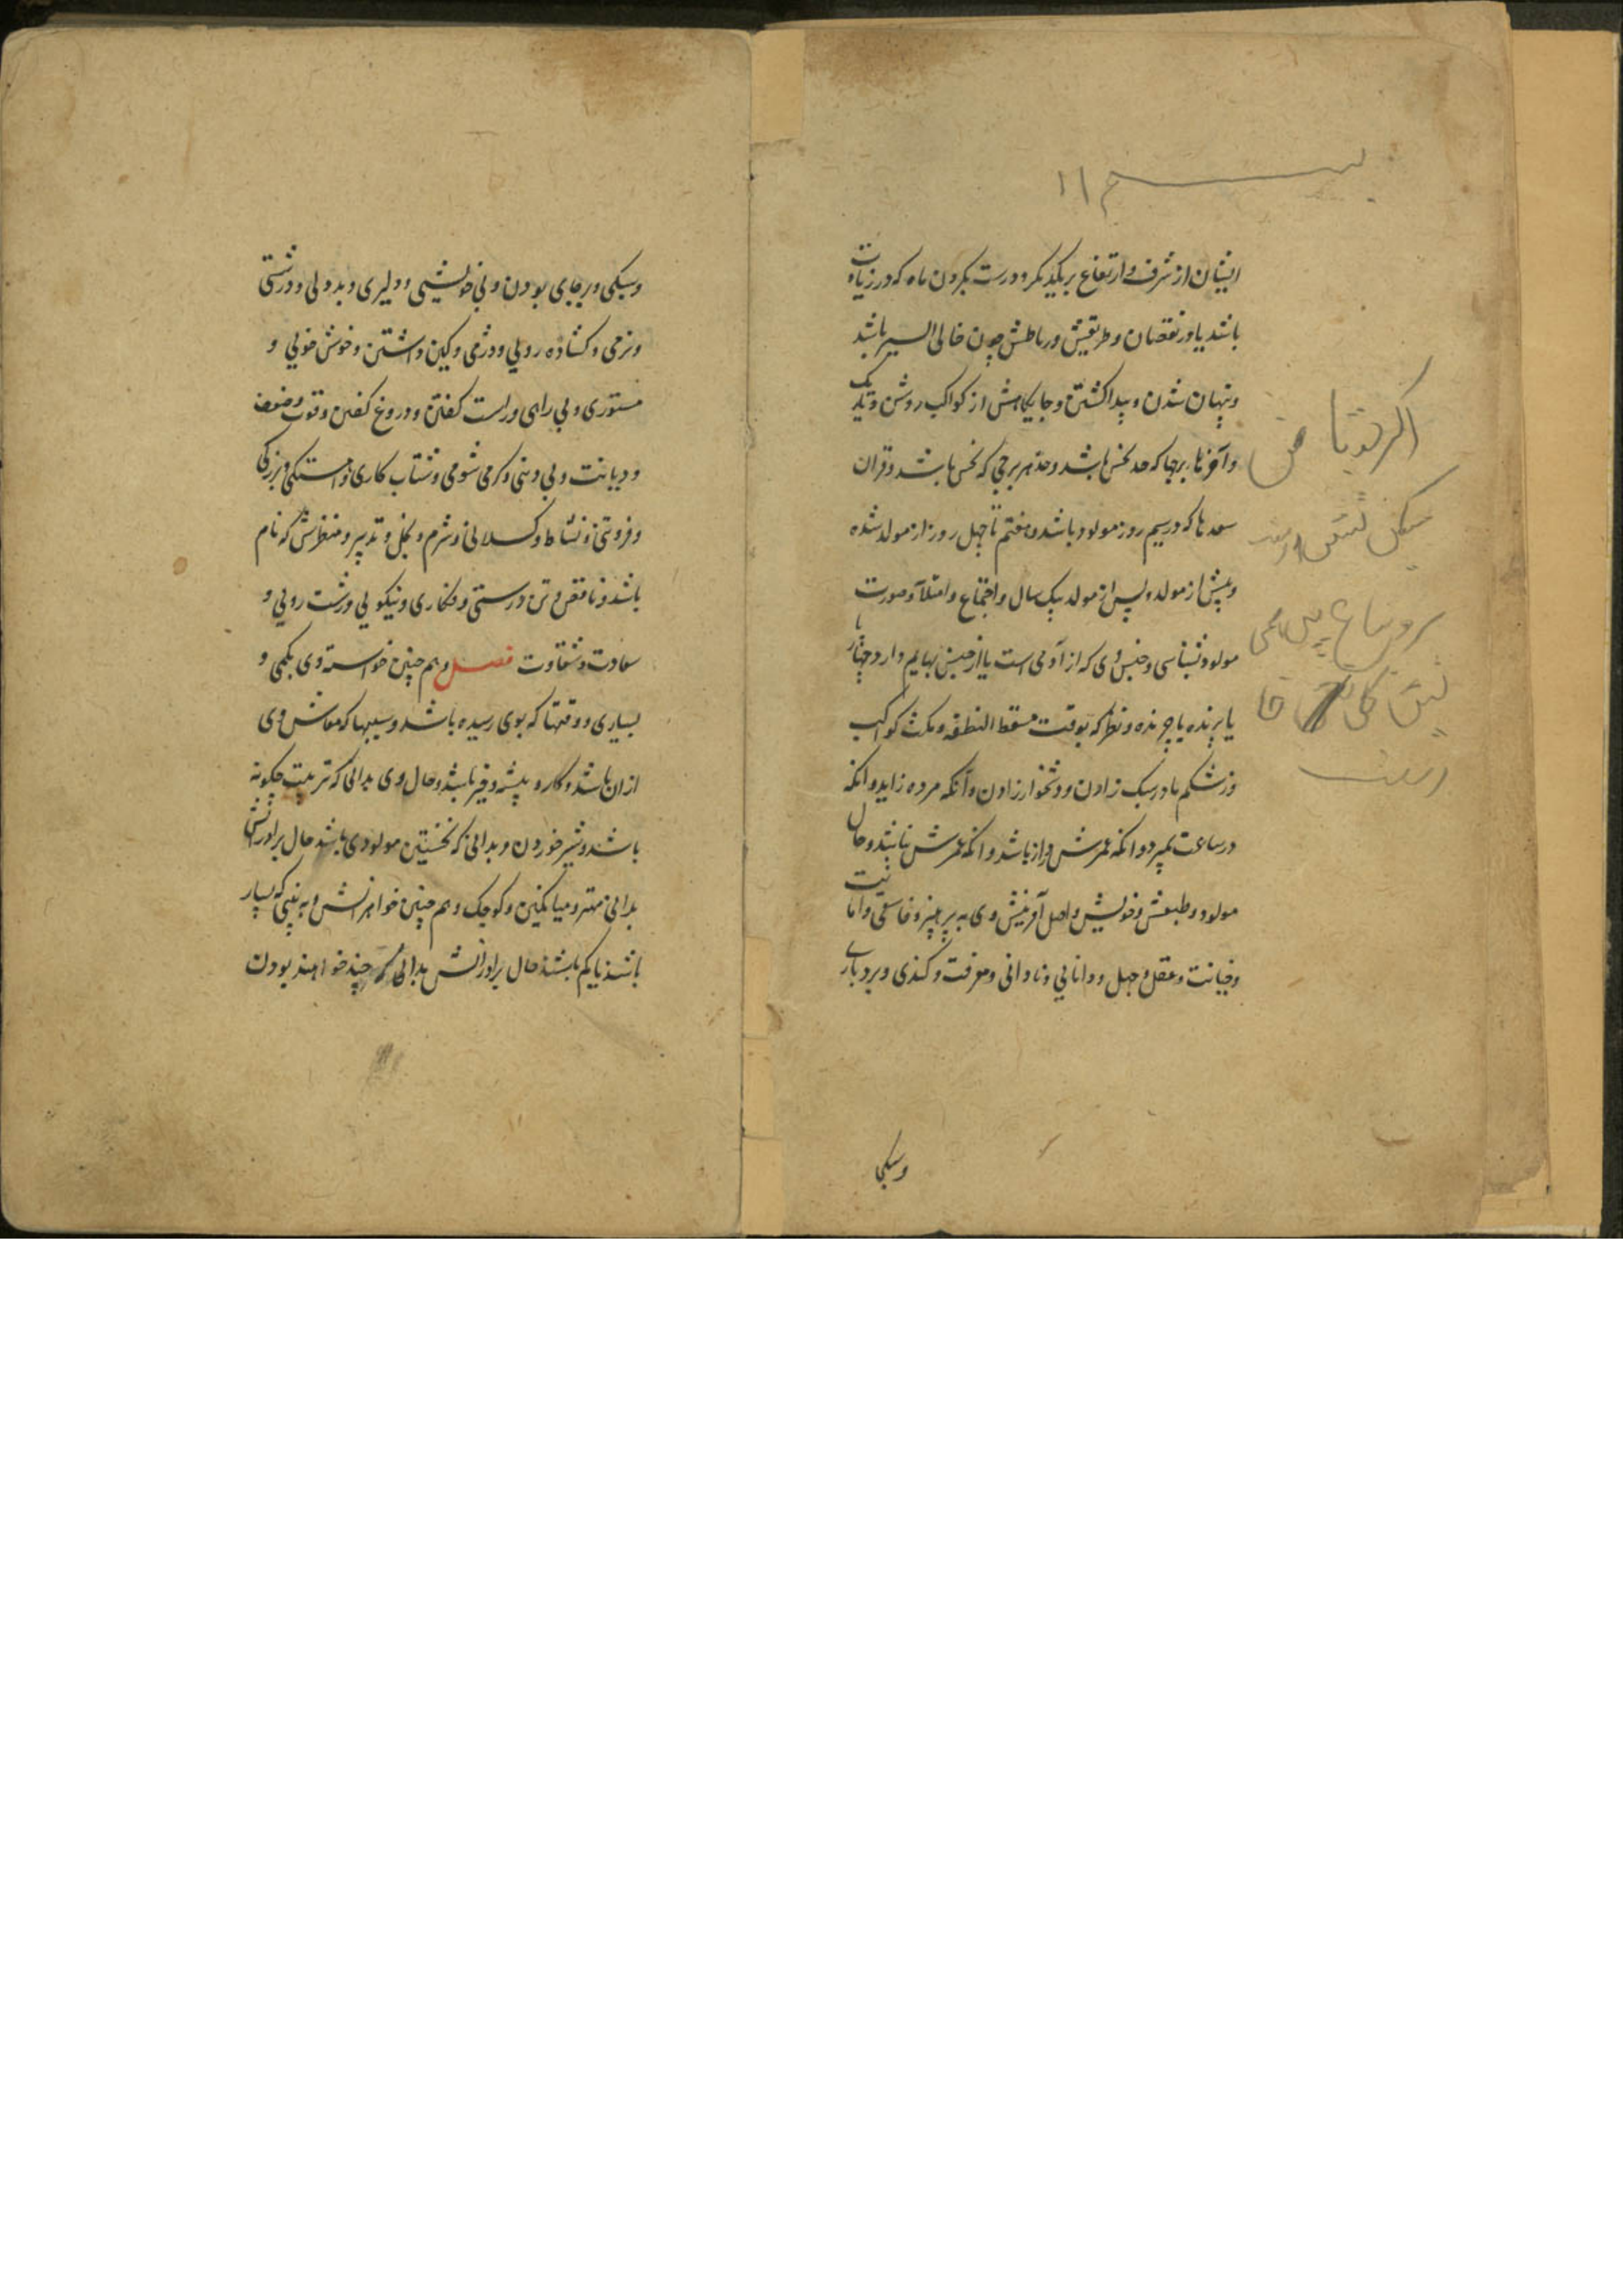 ایشان از شرف و ارتفاع بریکدیکر و درست بکردن ماه که در زیادت
باشد یا در نقصان و طریقیش و رباطش چون خالی السیر باشد
و پنهان شدن و پیدا کشتن و جایکاهش از کواکب روشن و تاریک
و آخرها برجها که حد نحس باشد و حد هر برجی که نحس باشد و قران
سعدها که در سیم روز مولود باشد و هفتم تا چهل روز از مولد شده
و پیش از مولد و پس از مولد بیک سال و اجتماع و امتلا و صورت
مولود بشناسی و جنس وی که از آدمی است یا از جنس بهایم دارد چهارپا
یا پرنده یا چرنده و نظر که بوقت مسقط النطفه و مکث کواکب
در شکم مادر سبک زادن و دشخوار زادن و آنکه مرده زاید و انکه
در ساعت بمیرد و انکه عمرش دراز باشد و انکه عمرش نباشد و حال
مولود و طبعش و خویش و اصل آفرینش وی به پرهیز و فاسقی و امانت
و خیانت و عقل و جهل و دانایی و نادانی و معرفت و کندی و بردباری
وسبکی
وسبکی و برجای بودن و بی خویشی و دلیری و بددلی و درشتی
و نرمی و کشاده رویی و دژمی و کین داشتن و خوش خویی و
مستوری و بی راهی و راست کفتن و دروغ کفتن و قوت و ضعف
و دیانت و بی دینی و کرمی شومی و شتاب کاری و آهستکی و بزرکی
و فروتنی و نشاط و کسلانی و شرم و بخل و تدبیر و منظرش که نام
باشد و ناقص و تن درستی و فکاری و نیکویی و زشت رویی و
سعادت و شقاوت فصل و هم چنین خواسته وی بکمی و
بسیاری و وقتها که بوی رسیده باشد و سببها که معاش وی
از ان باشد و کار و پیشه و خیر باشد و حال وی بدانی که تربیت چکونه
باشد و شیر خوردن و بدانی که نخستین مولودی باشد حال برادرانش
بدانی مهتر و میانکین و کوچک و هم چنین خواهرانش و به بینی که بسیار
باشند یا کم باشند حال برادرانش بدانی که چند خواهند بودن